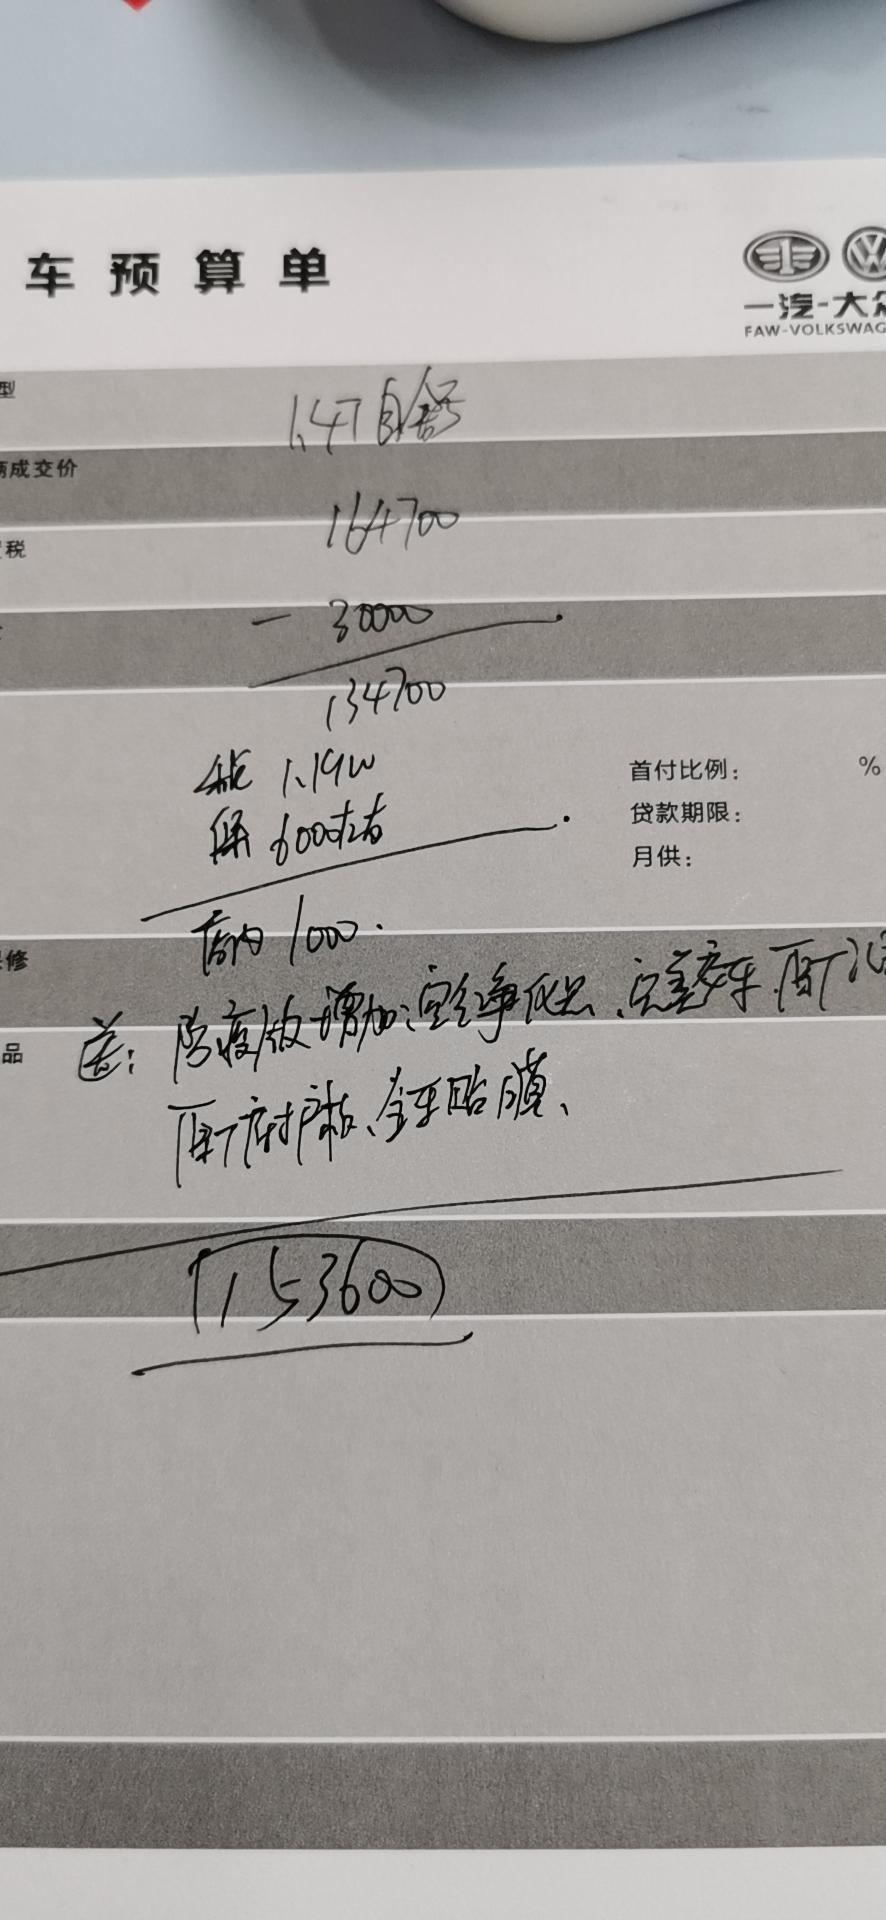 车预算单
一汽-大众
FAW-VOLKSWAG
型
1.4T自舒
成交价
164700
税
- 30000
134700
税 1.19w
保 6000左右
首付比例: %
贷款期限:
月供:
店内 1000.
修
品
送: 防疫版增加:空气净化器、
发动机护板、全车贴膜、
153600